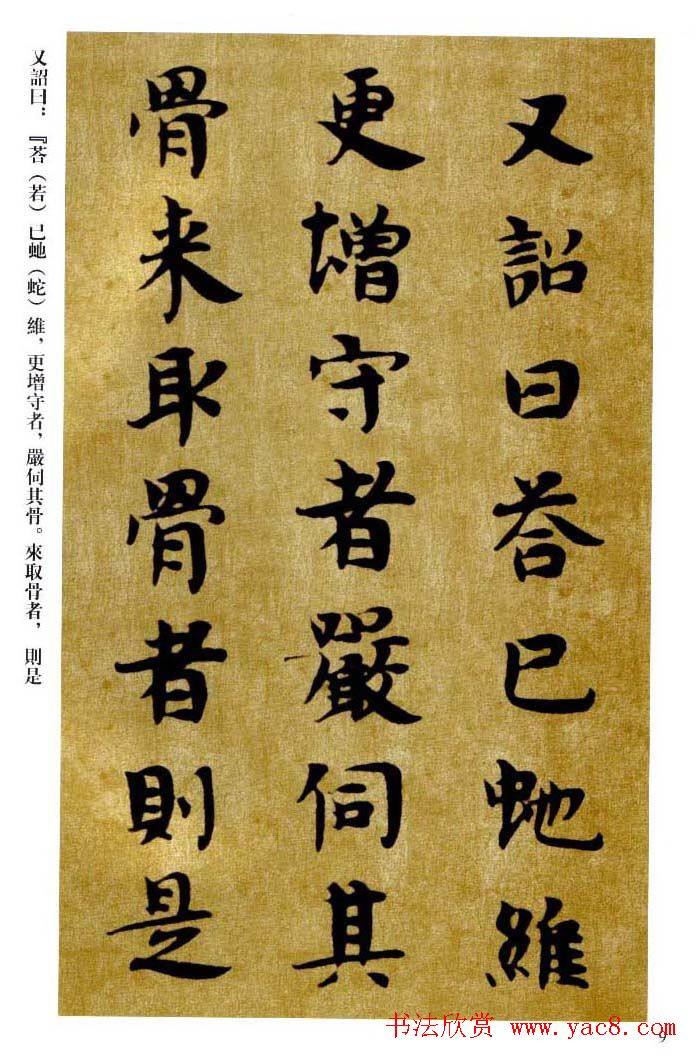 又詔曰荅已虵雖
更增守者嚴伺其
骨来取骨者則是
又詔曰：『荅（若）已虵（蛇）維，更增守者，嚴伺其骨。來取骨者，則是
书法欣赏 www.yac8.com
9